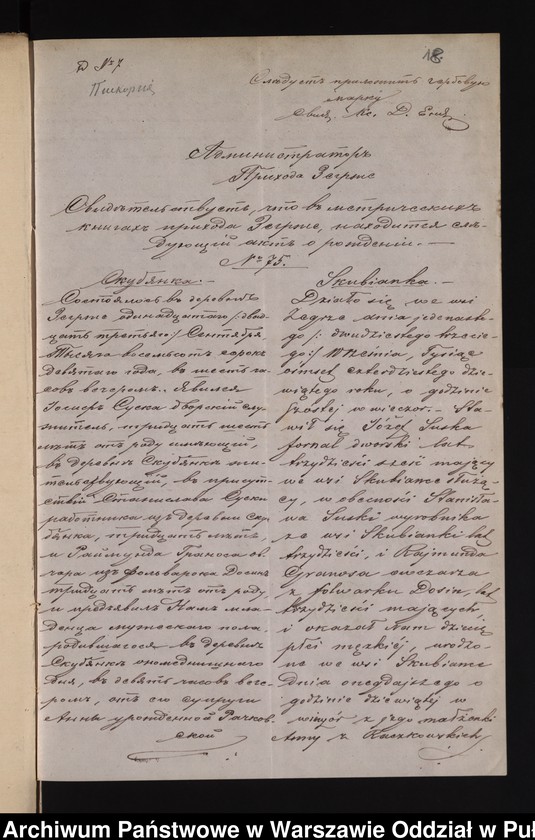 D № 7
18.
Слѣдуетъ приложить гербовую
марку
Кс. Д.
Администраторъ
Прихода Зегрже
Свидѣтельствуетъ, что въ метрическихъ
книгахъ прихода Зегрже, находится слѣ-
дующій актъ о рожденіи. —
№ 75.
Скубянка. —
Состоялось въ деревнѣ
Зегрже одинадцатаго /: двад-
цать третьяго :/ Сентября
тысяча восемьсотъ сорокъ
девятаго года, въ шесть ча-
совъ вечеромъ. Явился
Іосифъ Суска дворскій слу-
житель, тридцать шесть
лѣтъ отъ роду имѣющій,
въ деревнѣ Скубянка жи-
тельствующій, въ присут-
ствіи Станислава Суски
работника изъ деревни Ску-
бянка, тридцать лѣтъ,
и Раймунда Граноса ов-
чара изъ фольварка Досинъ
тридцать лѣтъ отъ роду
и предъявилъ Намъ мла-
денца мужескаго пола,
родившагося въ деревнѣ
Скубянкѣ
дня, въ девять часовъ вече-
ромъ, отъ его супруги
Анны урожденной Рачков-
ской
Skubianka. —
Działo się we wsi
Zegrze dnia jedenaste-
go /: dwudziestego trzecie-
go :/ Września, tysiąc
ośmset czterdziestego dzie-
wiątego roku, o godzinie
szóstej w wieczór. — Sta-
wił się Józef Suska
fornal dworski lat
trzydzieści sześć mający
we wsi Skubiance służą-
cy, w obecności Stanisła-
wa Suski wyrobnika
ze wsi Skubianki lat
trzydzieści, i Rajmunda
Granosa owczarza
z folwarku Dosin, lat
trzydzieści mających,
i okazał Nam dziecię
płci męzkiéj, urodzo-
ne we wsi Skubiance
dnia onegdajszego o
godzinie dziewiątej w
wieczór z jego małżonki
Anny z Raczkowskich,
Archiwum Państwowe w Warszawie Oddział w Puł